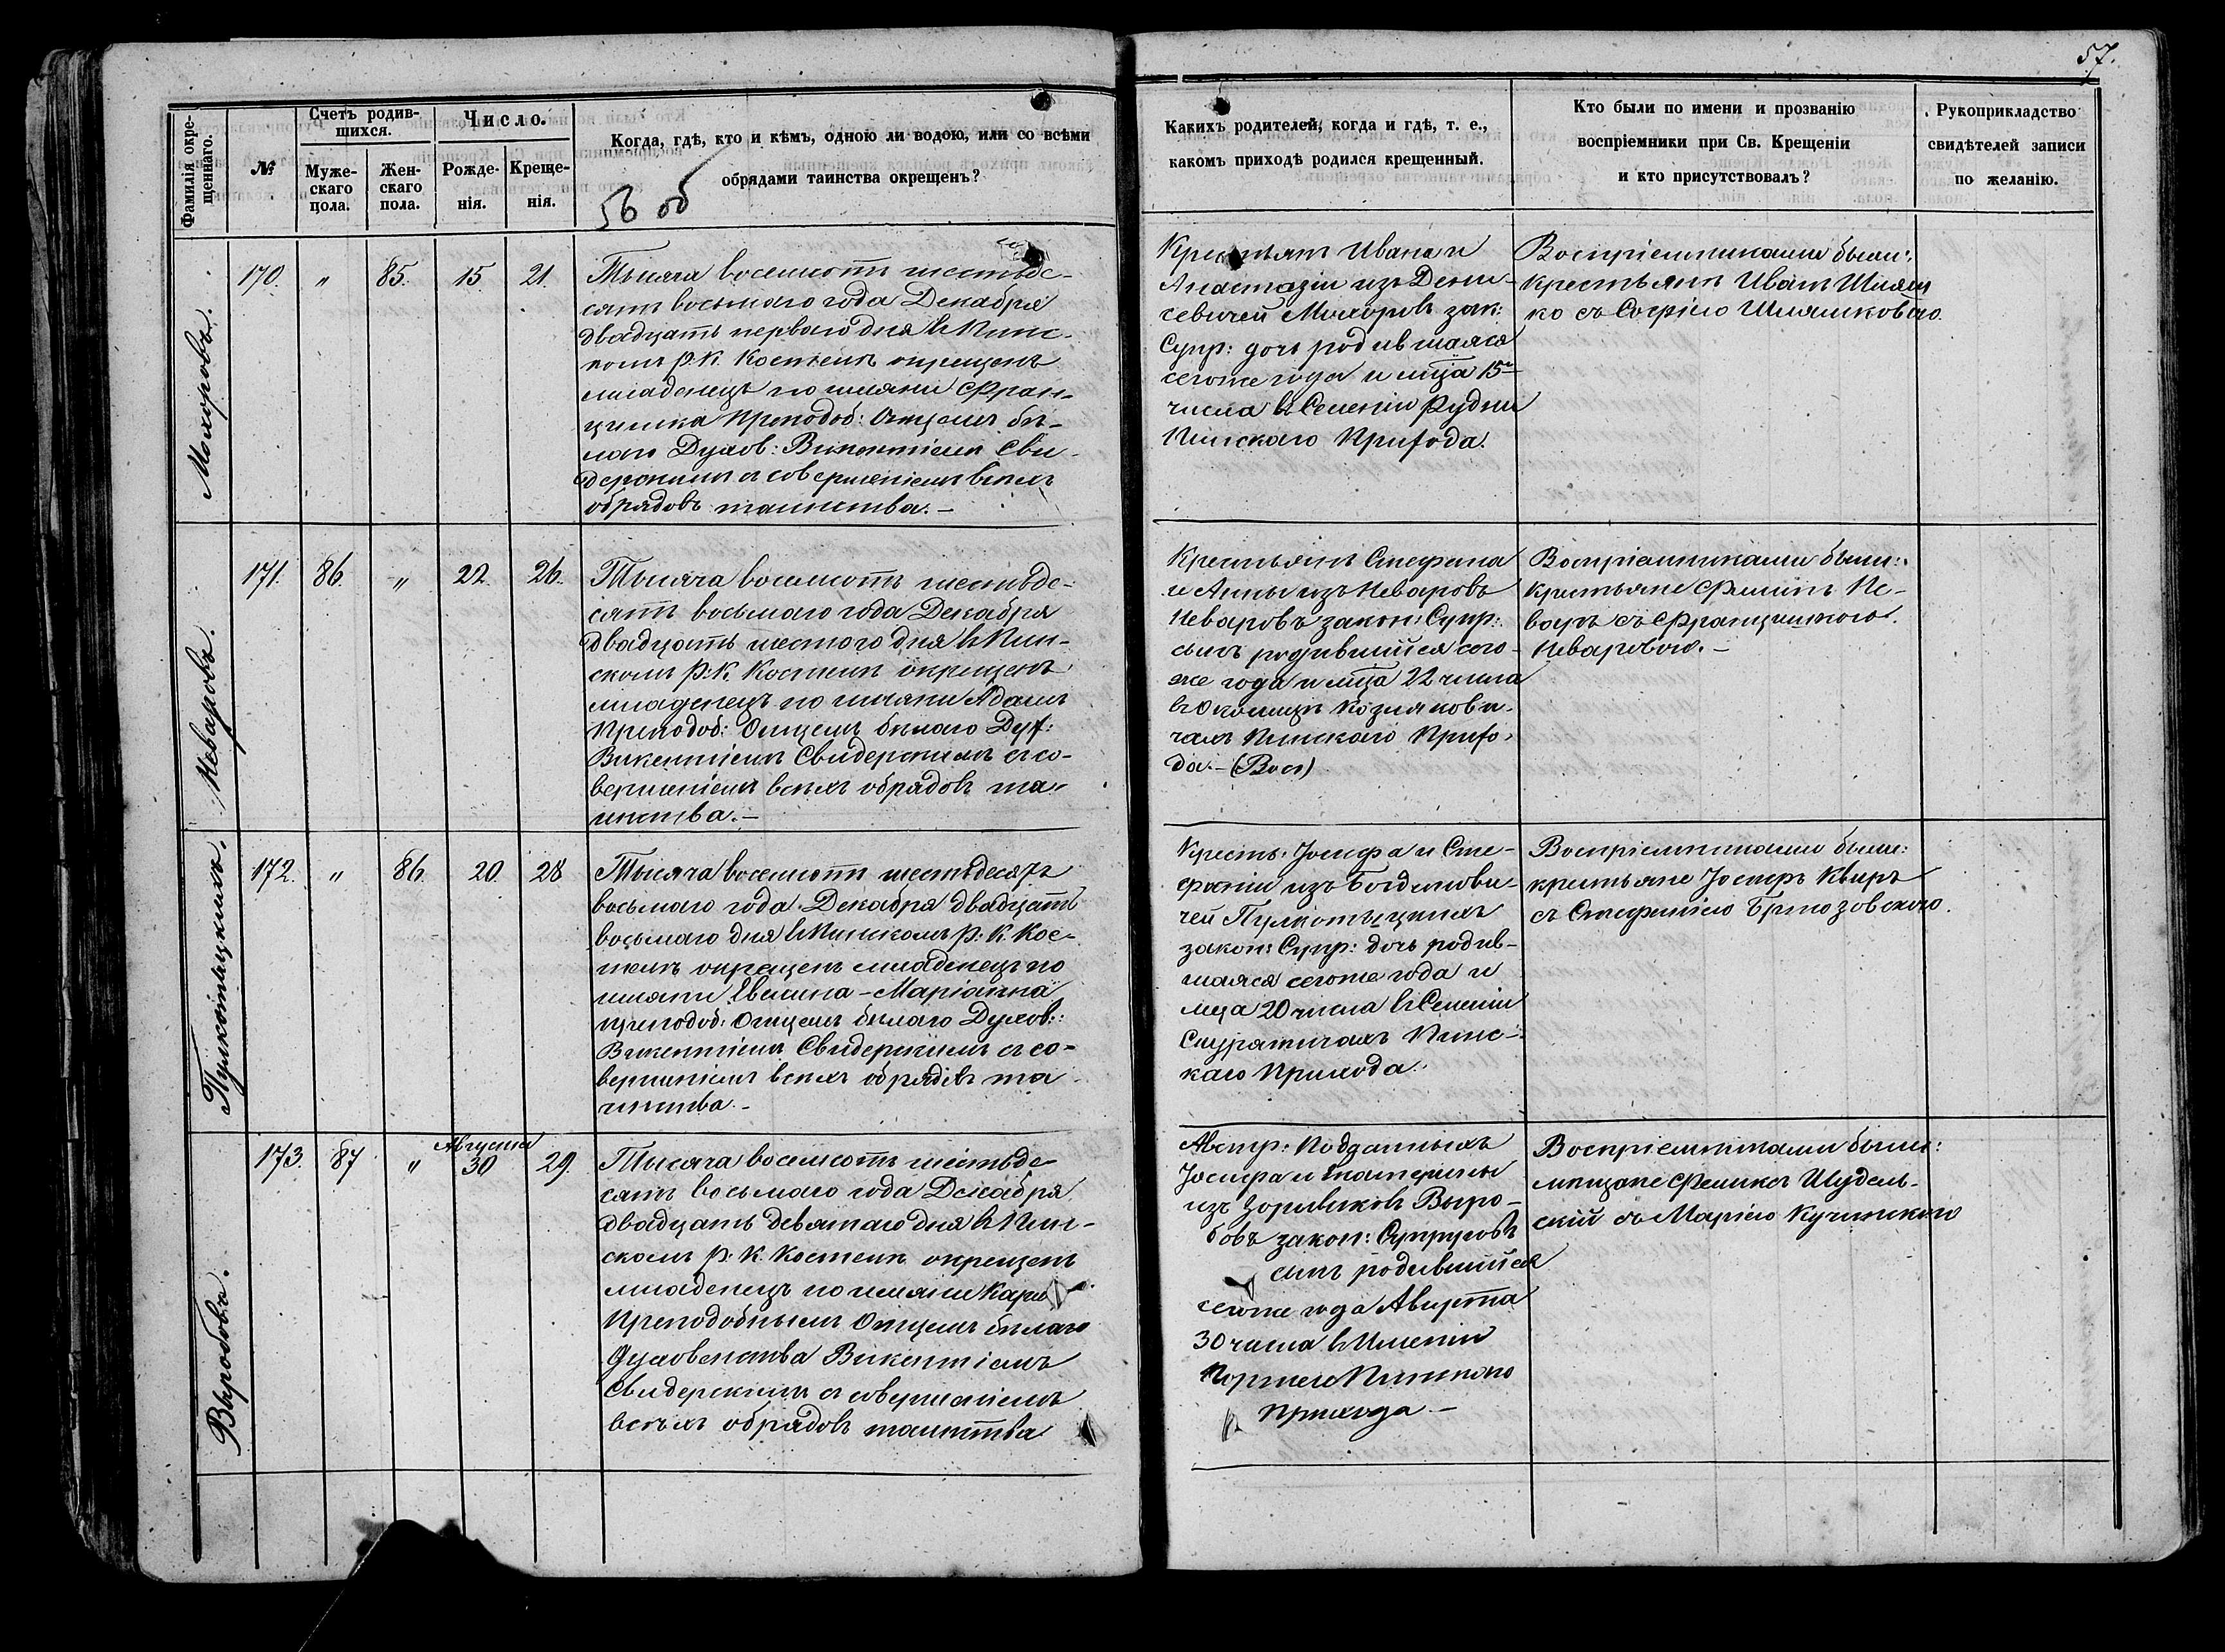 57.
Фамилія окрещеннаго.
№
Счетъ родившихся.
Мужескаго пола.
Женскаго пола.
Число.
Рожденія.
Крещенія.
Когда, гдѣ, кто и кѣмъ, одною ли водою, или со всѣми
обрядами таинства окрещенъ?
56 об
Какихъ родителей, когда и гдѣ, т. е.,
какомъ приходѣ родился крещенный.
Кто были по имени и прозванію
воспріемники при Св. Крещеніи
и кто присутствовалъ?
Рукоприкладство
свидѣтелей записи
по желанію.
Мохоровъ.
170. „ 85. 15 21.
Тысяча восемьсотъ шестьде-
сятъ восьмаго года Декабря
двадцать перваго дня въ Пинс-
комъ Р. К. Костелѣ окрещенъ
младенецъ по имяни Фран-
цишка Преподоб: Отцемъ бѣ-
лаго Духов: Викентіемъ Сви-
дерскимъ съ совершеніемъ всѣхъ
обрядовъ таинства.—
Крестьянъ Ивана и
Анастазіи изъ Дени-
севичей Мохоровъ зак:
Супр: дочь родившаяся
сегоже года и мца 15го
числа въ Селеніи Рудни
Пинскаго Прихода.
Воспріемниками были:
крестьянъ Иванъ Шляш
ко съ Софіею Шляшковою.
Неваровъ.
171. 86. „ 22. 26.
Тысяча восемьсотъ шестьде-
сятъ восьмаго года Декабря
двадцать шестого дня въ Пин-
скомъ Р. К. Костелѣ окрещенъ
младенецъ по имяни Адамъ
Преподоб: Отцемъ бѣлаго Дух:
Викентіемъ Свидерскимъ съ со-
вершеніемъ всѣхъ обрядовъ та-
инства.—
Крестьянъ Стефана
и Анны изъ Неваровъ
Неваровъ закон: Супр:
сынъ родившійся сего-
же года и мца 22 числа
въ Околицѣ Козлякови-
чахъ Пинскаго Прихо-
да.— (Вось)
Воспріемниками были:
крестьяне Филипъ Не-
варъ съ Францишкою
Неваровою.—
Пулкотыцкихъ.
172. „ 86. 20. 28
Тысяча восемьсотъ шестьдесятъ
восьмаго года Декабря двадцать
восьмаго дня въ Пинскомъ Р. К. Кос-
телѣ окрещенъ младенецъ по
имяни Евелина-Маріанна
преподоб: Отцемъ бѣлаго Духов:
Викентіемъ Свидерскимъ съ со-
вершеніемъ всѣхъ обрядовъ та
инства.—
Кресть: Іосифа и Сте-
фаніи изъ Богданови-
чей Пулкотыцкихъ
закон: Супр: дочь родив-
шаяся сегоже года и
мца 20 числа въ Селеніи
Скуратичахъ Пинс-
каго Прихода.
Воспріемниками были:
крестьяне Іосифъ Квиръ
съ Стефаніею Бржозовскою.
Выробовъ.
173. 87 „ Августа 30 29.
Тысяча восемьсотъ шестьде-
сятъ восьмаго года Декабря
двадцать девятаго дня въ Пин-
скомъ Р. К. Костелѣ окрещенъ
младенецъ по имяни Карлъ
Преподобнымъ Отцемъ бѣлаго
Духовенства Викентіемъ
Свидерскимъ съ совершеніемъ
всѣхъ обрядовъ таинства
Австр: Подданныхъ
Іосифа и Екатерины
изъ Выро-
бовъ закон: Супруговъ
сынъ родившійся
сегоже года Августа
30 числа въ Имѣніи
Пинского
Прихода.—
Воспріемниками были:
мѣщане Феликсъ Шудель-
скій съ Маріею Кучинскою